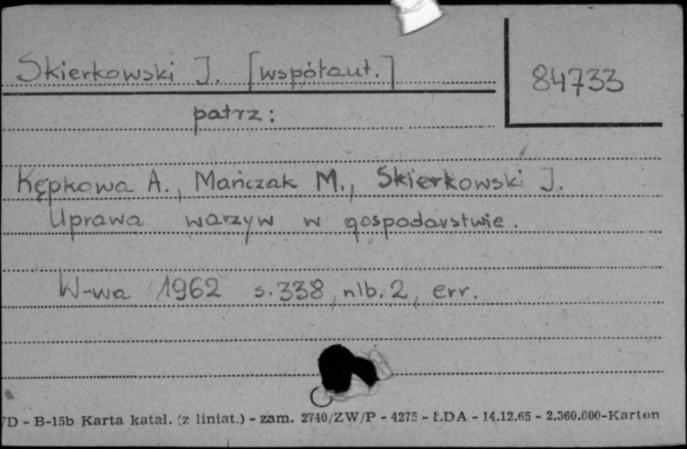 Skierkowski J. [współaut.]
84733
patrz:
Kępkowa A., Mańczak M., Skierkowski J.
Uprawa warzyw w gospodarstwie.
W-wa 1962 s.338, nlb.2, err.
VD - B-15b Karta katal. (z liniat.) - zam. 2740/ZW/P - 4275 - ŁDA - 14.12.65 - 2.360.000-Karton